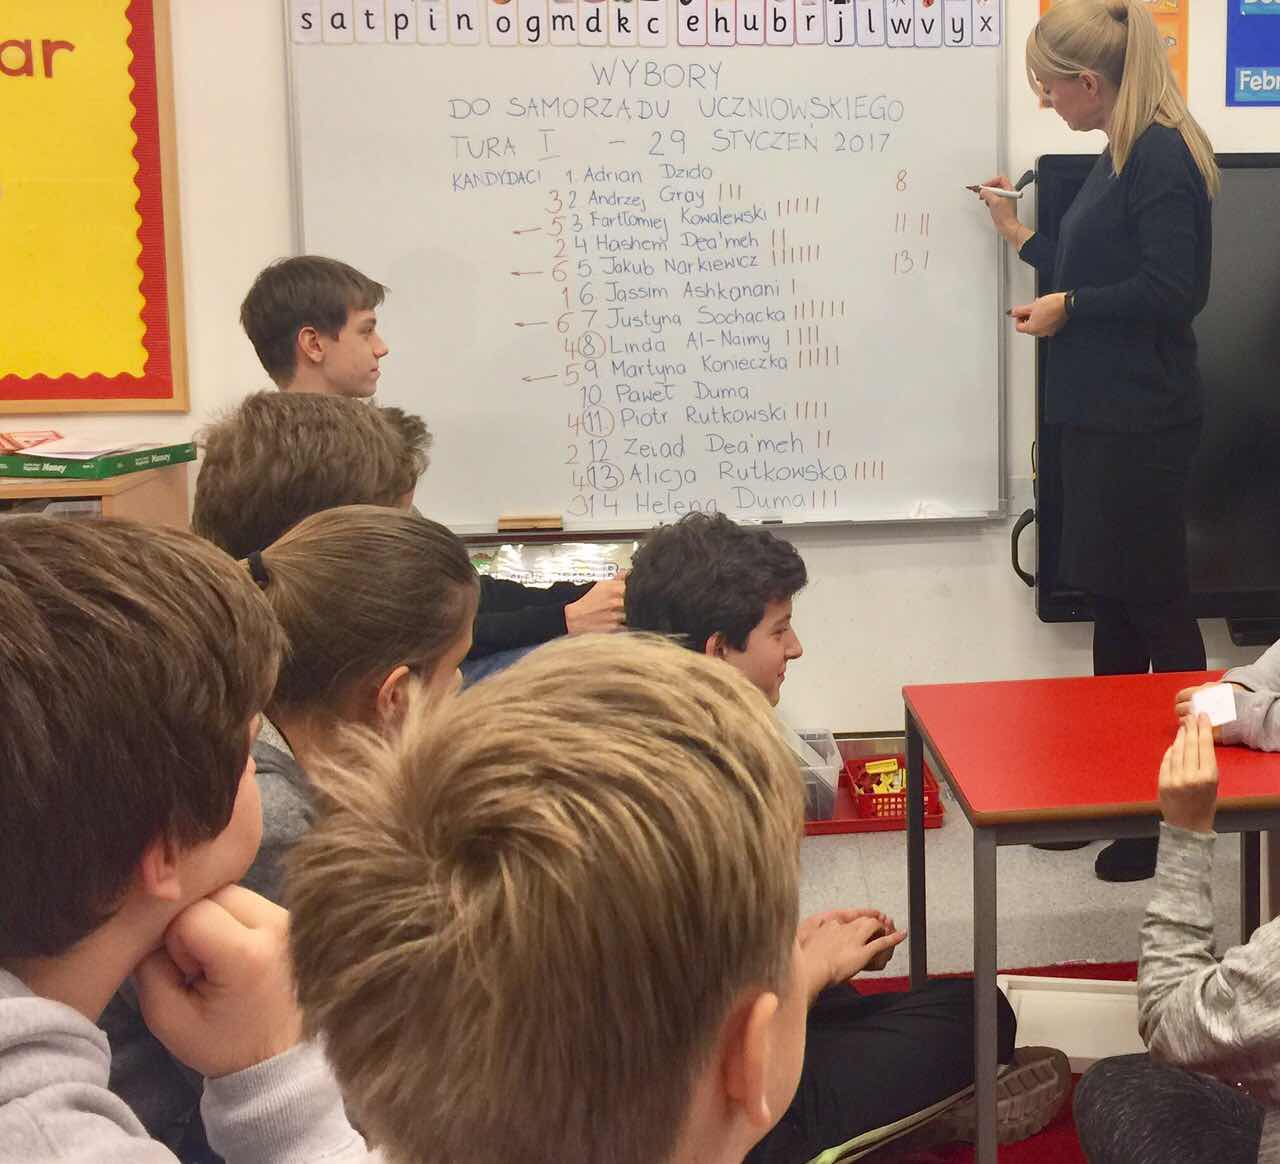 ar
s a t p i n o g m d k c e h u b r j l w v y x
Febr
WYBORY
DO SAMORZĄDU UCZNIOWSKIEGO
TURA I - 29 STYCZEŃ 2017
KANDYDACI 1. Adrian Dzido 8
3 2 Andrzej Gray |||
← 5 3 Fartłomiej Kowalewski ||||| 11 ||
2 4 Hashem Dea'meh ||
← 6 5 Jakub Narkiewicz |||||| 13 |
1 6 Jassim Ashkanani |
← 6 7 Justyna Sochacka ||||||
4 8 Linda Al-Naimy ||||
← 5 9 Martyna Konieczka |||||
10 Paweł Duma
4 11. Piotr Rutkowski ||||
2 12 Zeiad Dea'meh ||
4 13 Alicja Rutkowska ||||
3 14 Helena Duma |||
Money